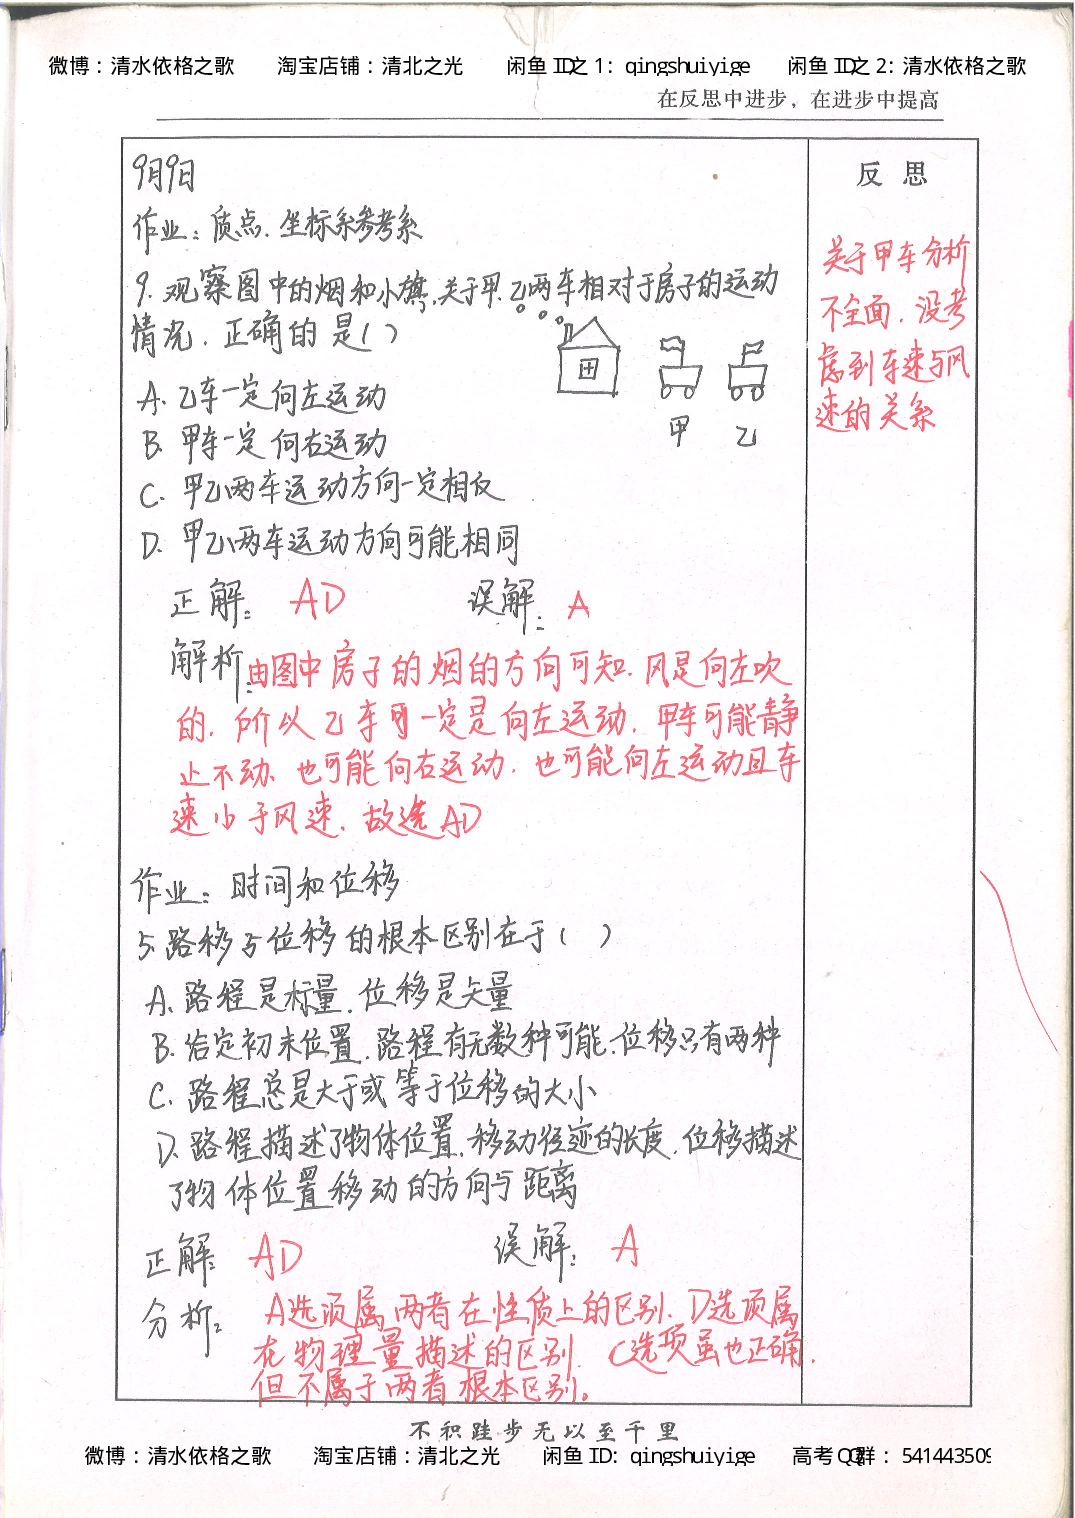 微博：清水依格之歌 淘宝店铺：清北之光 闲鱼 ID之 1：qingshuiyige 闲鱼 ID之 2：清水依格之歌
在反思中进步，在进步中提高
9月9日
作业：质点．坐标系参考系
9. 观察图中的烟和小旗，关于甲.乙两车相对于房子的运动
情况．正确的是( )
A. 乙车一定向左运动
B. 甲车一定向右运动
C. 甲乙两车运动方向一定相反
D. 甲乙两车运动方向可能相同
田
甲 乙
正解：AD 误解：A
解析：由图中房子的烟的方向可知．风是向左吹
的．所以乙车一定是向左运动．甲车可能静
止不动、也可能向右运动．也可能向左运动且车
速小于风速．故选AD
作业：时间和位移
5.路移与位移的根本区别在于( )
A.路程是标量．位移是矢量
B.给定初末位置．路程有无数种可能.位移只有两种
C. 路程总是大于或等于位移的大小
D.路程描述了物体位置．移动径迹的长度．位移描述
了物体位置移动的方向与距离
正解：AD 误解：A
分析：A选项属两者在性质上的区别．D选项属
在物理量描述的区别．C选项虽也正确．
但不属于两者根本区别。
反思
关于甲车分析
不全面．没考
虑到车速与风
速的关系
不积跬步无以至千里
微博：清水依格之歌 淘宝店铺：清北之光 闲鱼 ID：qingshuiyige 高考QQ群：541443509